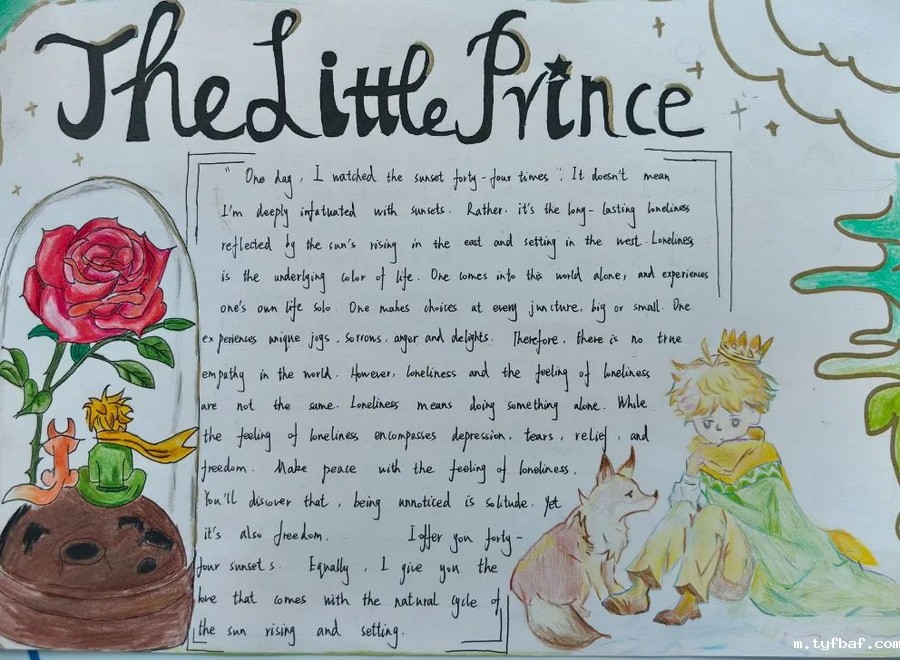 The Little Prince
" One day, I watched the sunset forty-four times ". It doesn't mean
I'm deeply infatuated with sunsets. Rather, it's the long-lasting loneliness
reflected by the sun's rising in the east and setting in the west. Loneliness
is the underlying color of life. One comes into this world alone, and experiences
one's own life solo. One makes choices at every juncture, big or small. One
experiences unique joys, sorrows, anger and delights. Therefore, there is no true
empathy in the world. However, loneliness and the feeling of loneliness
are not the same. Loneliness means doing something alone. While
the feeling of loneliness encompasses depression, tears, relief, and
freedom. Make peace with the feeling of loneliness.
You'll discover that, being unnoticed is solitude. Yet
it's also freedom. I offer you forty-
four sunsets. Equally, I give you the
love that comes with the natural cycle of
the sun rising and setting.
m.tyfbaf.com